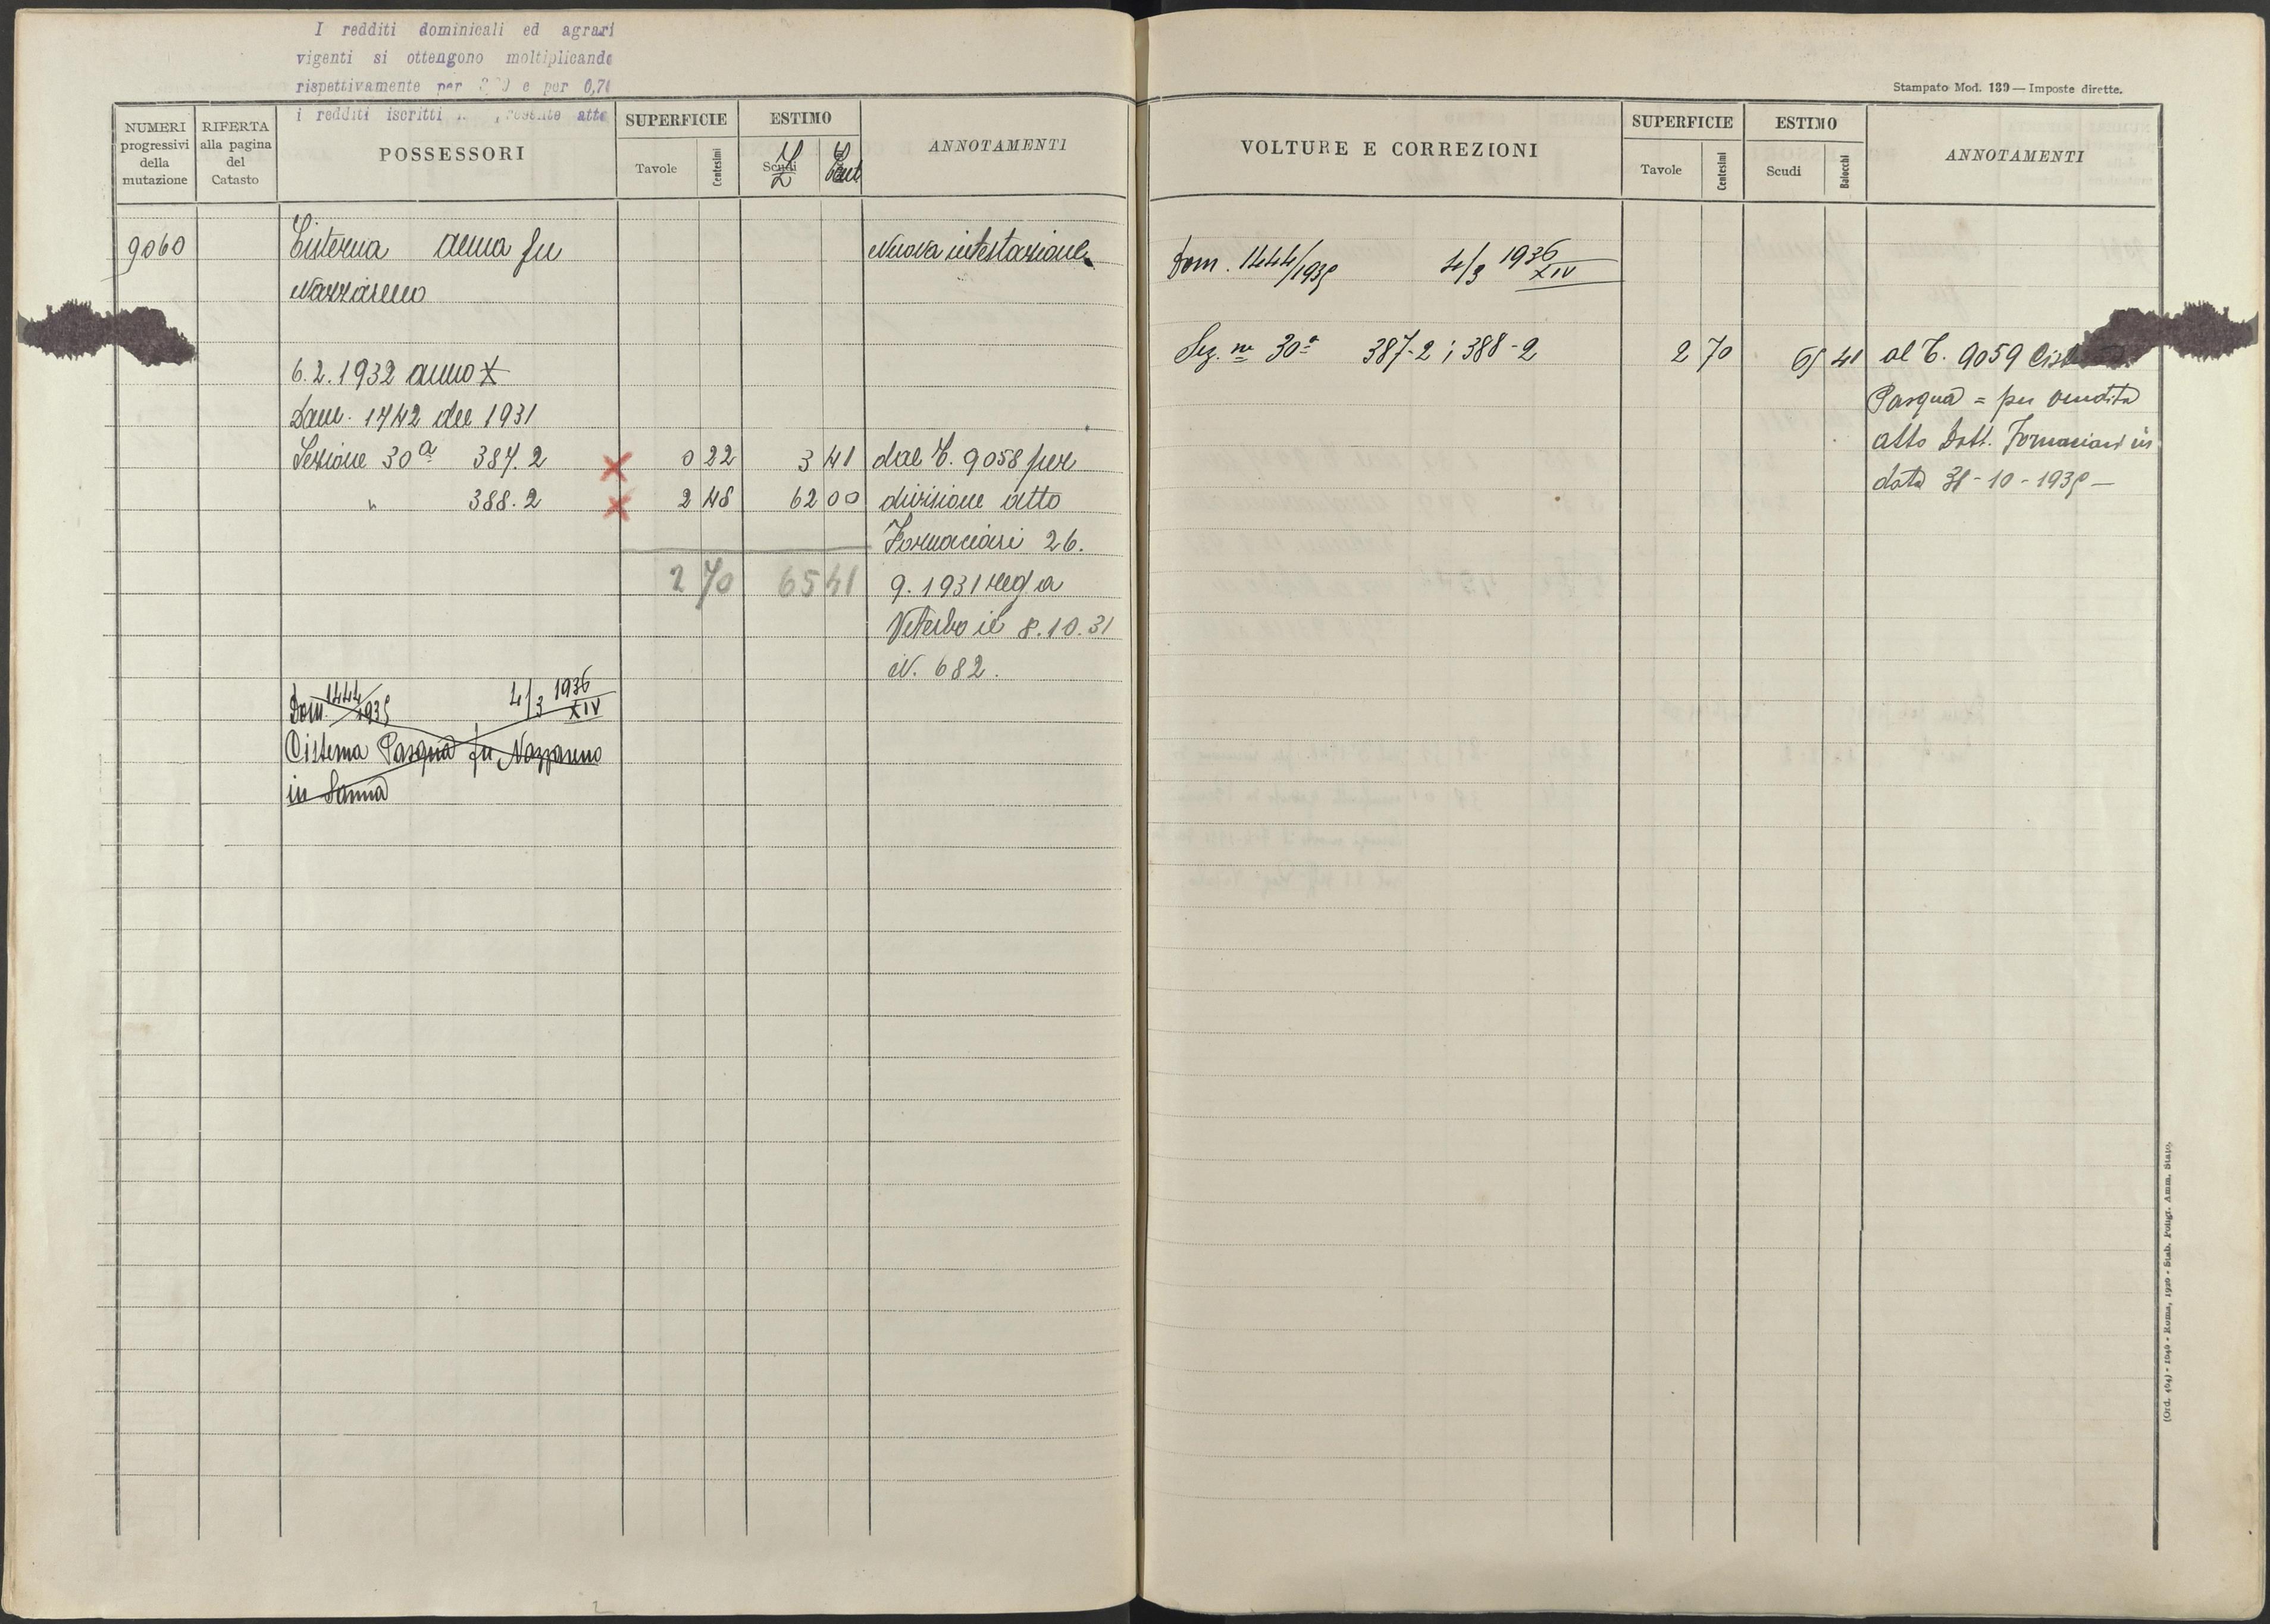 I redditi dominicali ed agrari
vigenti si ottengono moltiplicando
rispettivamente per e per 0,70
i redditi iscritti presente atto
NUMERI progressivi della mutazione
RIFERTA alla pagina del Catasto
POSSESSORI
SUPERFICIE
Tavole Centesimi
ESTIMO
Scudi L Cent
ANNOTAMENTI
9060 Cisterna Anna fu Nuova intestazione
Nazzareno
6.2.1932 anno X
Dom. 1442 del 1931
Sezione 30ª 387.2 0 22 3 41 dal C. 9058 per
" 388.2 2 48 62 00 divisione atto
Fornaciari 26.
2 70 65 41 9.1931 reg a
Viterbo il 8.10.31
N. 682.
Dom. 1444/1935 4/3 1936 XIV
Cisterna Pasqua fu Nazzareno
in Sanna
Stampato Mod. 139 — Imposte dirette.
VOLTURE E CORREZIONI
SUPERFICIE
Tavole Centesimi
ESTIMO
Scudi Baiocchi
ANNOTAMENTI
Dom. 1444/1935 4/3 1936 XIV
Sez. ne 30ª 387-2; 388-2 2 70 65 41 al C. 9059
Pasqua = per vendita
atto Dott. Fornaciari in
data 31-10-1935 —
(Ord. 404) - 1949 - Roma, 1929 - Stab. Poligr. Amm. Stato.